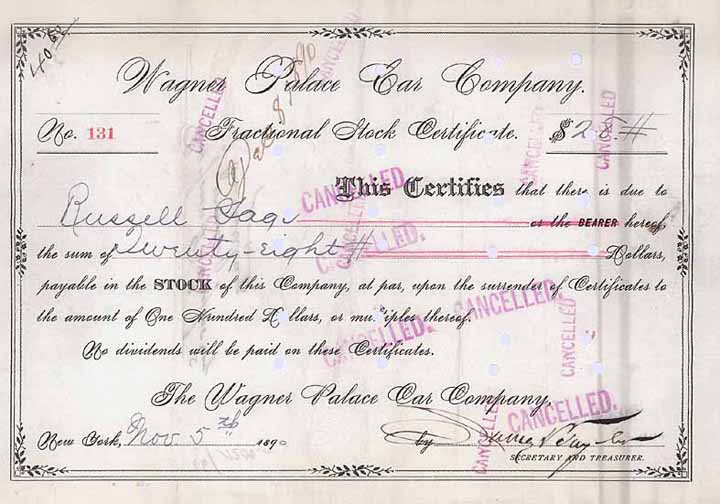 Wagner Palace Car Company.
No. 131 Fractional Stock Certificate. $28 #
This Certifies that there is due to
Russell Sage or the BEARER hereof
the sum of Twenty-Eight # Dollars,
payable in the STOCK of this Company, at par, upon the surrender of Certificates to
the amount of One Hundred Dollars, or multiples thereof.
No dividends will be paid on these Certificates.
The Wagner Palace Car Company,
New York, Nov 5th 1890 by
SECRETARY AND TREASURER.
CANCELLED
CANCELLED.
CANCELLED.
CANCELLED
CANCELLED.
CANCELLED
CANCELLED
CANCELLED
CANCELLED
CANCELLED
CANCELLED
CANCELLED
CANCELLED